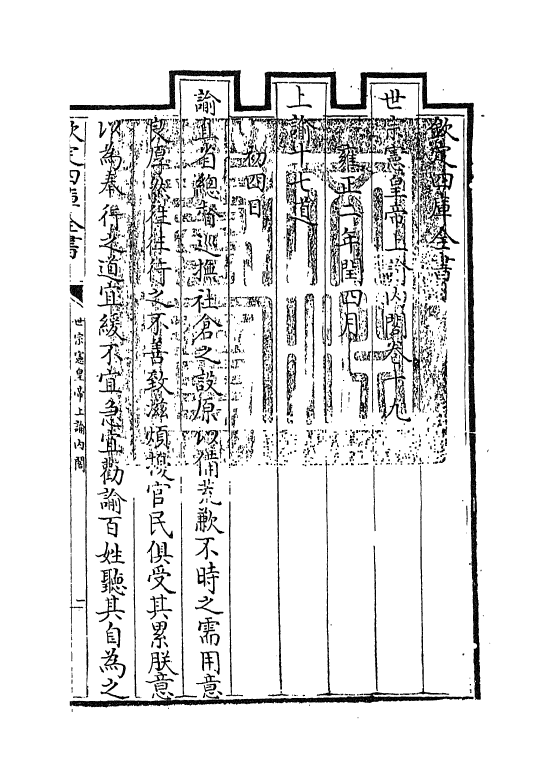 欽定四庫全書
世宗憲皇帝上諭内閣卷十九
雍正二年閏四月
上諭十七道
初四日
諭直省總督巡撫社倉之設原以備荒歉不時之需用意
良厚然往往行之不善致滋煩擾官民俱受其累朕意
以為奉行之道宜緩不宜急宜勸諭百姓聽其自為之
欽定四庫全書
世宗憲皇帝上諭内閣